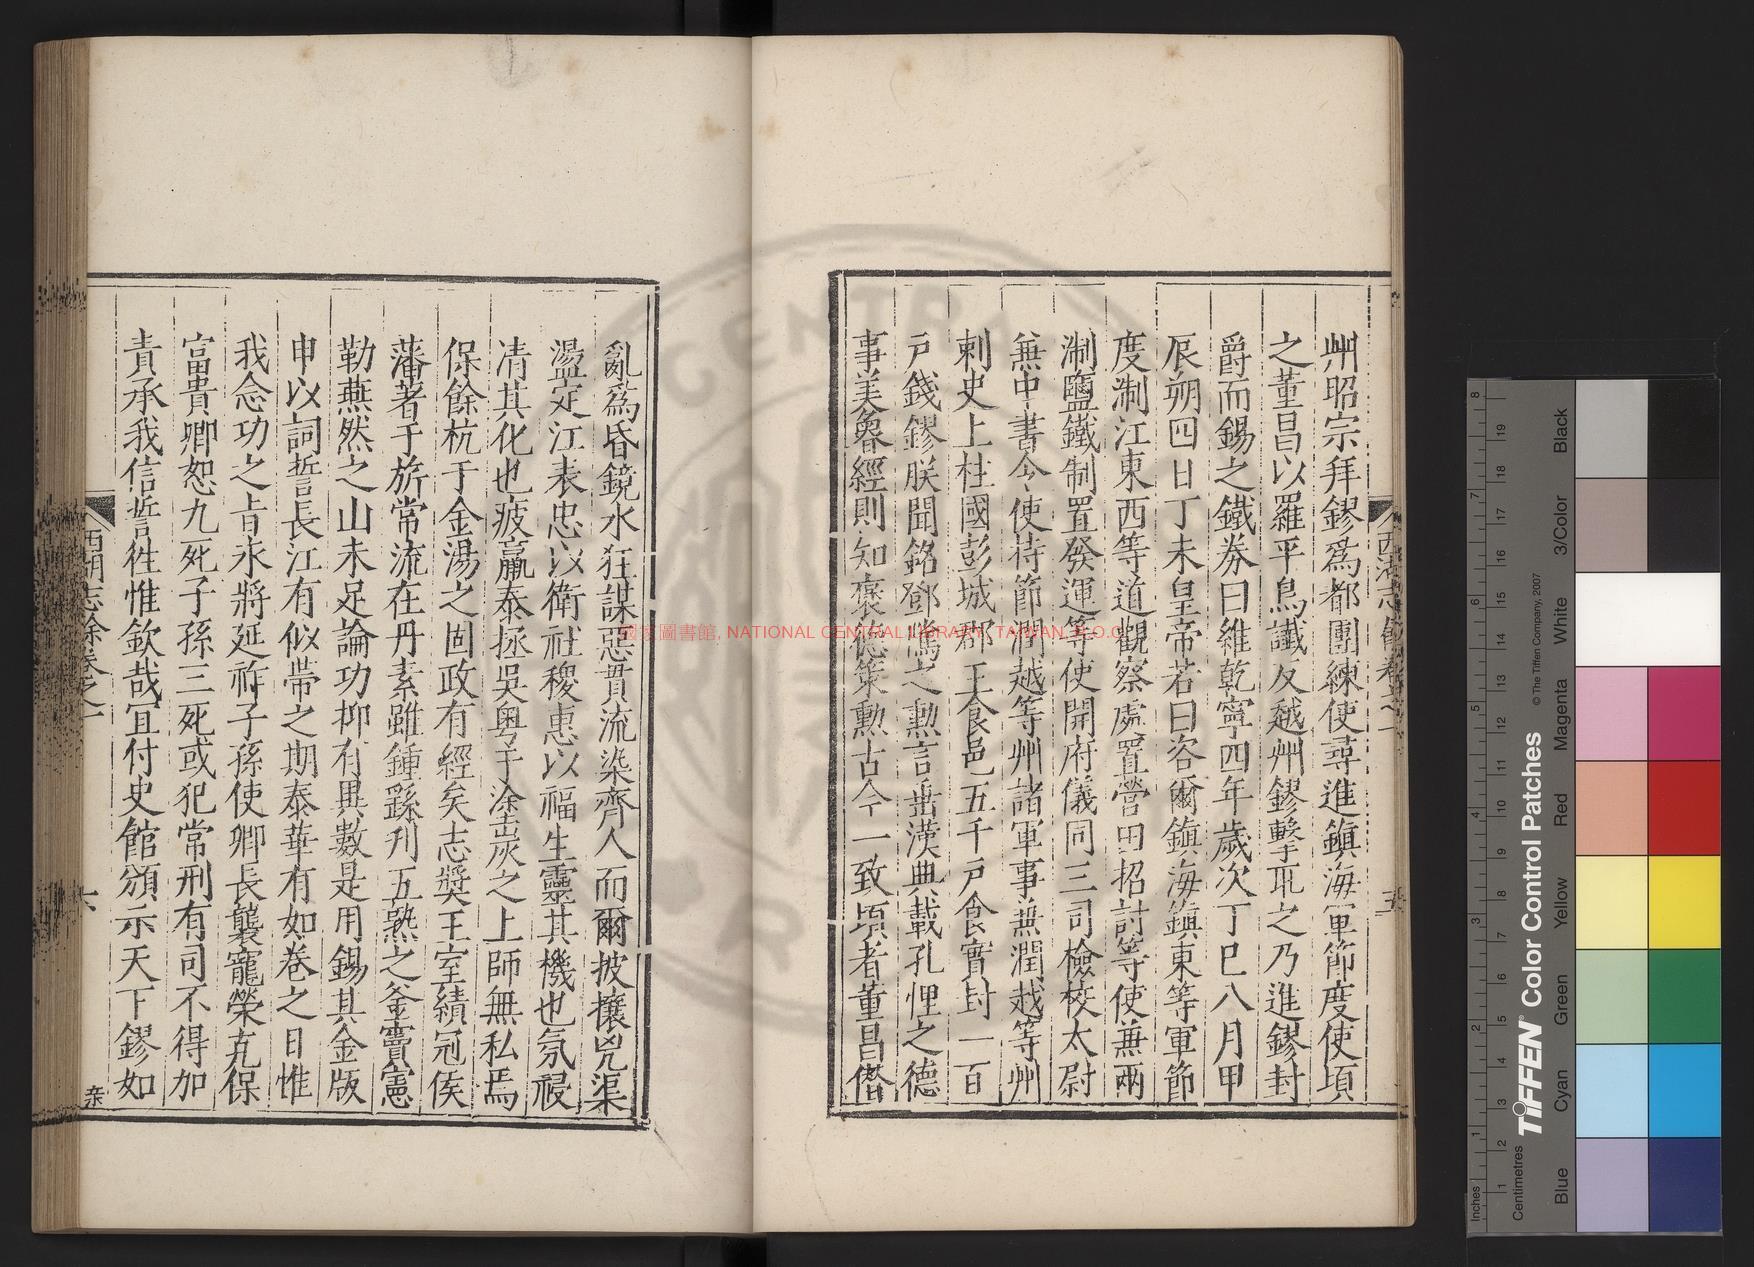 州昭宗拜鏐爲都團練使尋進鎭海軍節度使頃
之董昌以羅平鳥讖反越州鏐擊取之乃進鏐封
爵而錫之鐵券曰維乾寧四年歲次丁巳八月甲
辰朔四日丁未皇帝若曰咨爾鎭海鎭東等軍節
度淛江東西等道觀察處置營田招討等使兼兩
淛鹽鐵制置發運等使開府儀同三司檢校太尉
兼中書令使持節潤越等州諸軍事兼潤越等州
刺史上柱國彭城郡王食邑五千戶食實封一百
戶錢鏐朕聞銘鄧隲之勲言垂漢典載孔悝之德
事美魯經則知褒德策勲古今一致頃者董昌僭
亂爲昏鏡水狂謀惡貫流染齊人而爾披攘兇渠
盪定江表忠以衛社稷惠以福生靈其機也氛祲
清其化也疲羸泰拯吳粤于塗炭之上師無私焉
保餘杭于金湯之固政有經矣志奬王室績冠侯
藩著于旂常流在丹素雖鍾繇刋五熟之釡竇憲
勒燕然之山未足論功抑有異數是用錫其金版
申以詞誓長江有似帶之期泰華有如卷之日惟
我念功之旨永將延祚子孫使卿長襲寵榮克保
富貴卿恕九死子孫三死或犯常刑有司不得加
責承我信誓徃惟欽哉宜付史館頒示天下鏐如
西湖志餘卷之一
五
西湖志餘卷之一
六
國家圖書館, NATIONAL CENTRAL LIBRARY, TAIWAN, R.O.C
TIFFEN® Color Control Patches
© The Tiffen Company, 2007
Inches
Centimetres
Blue Cyan Green Yellow Red Magenta White 3/Color Black